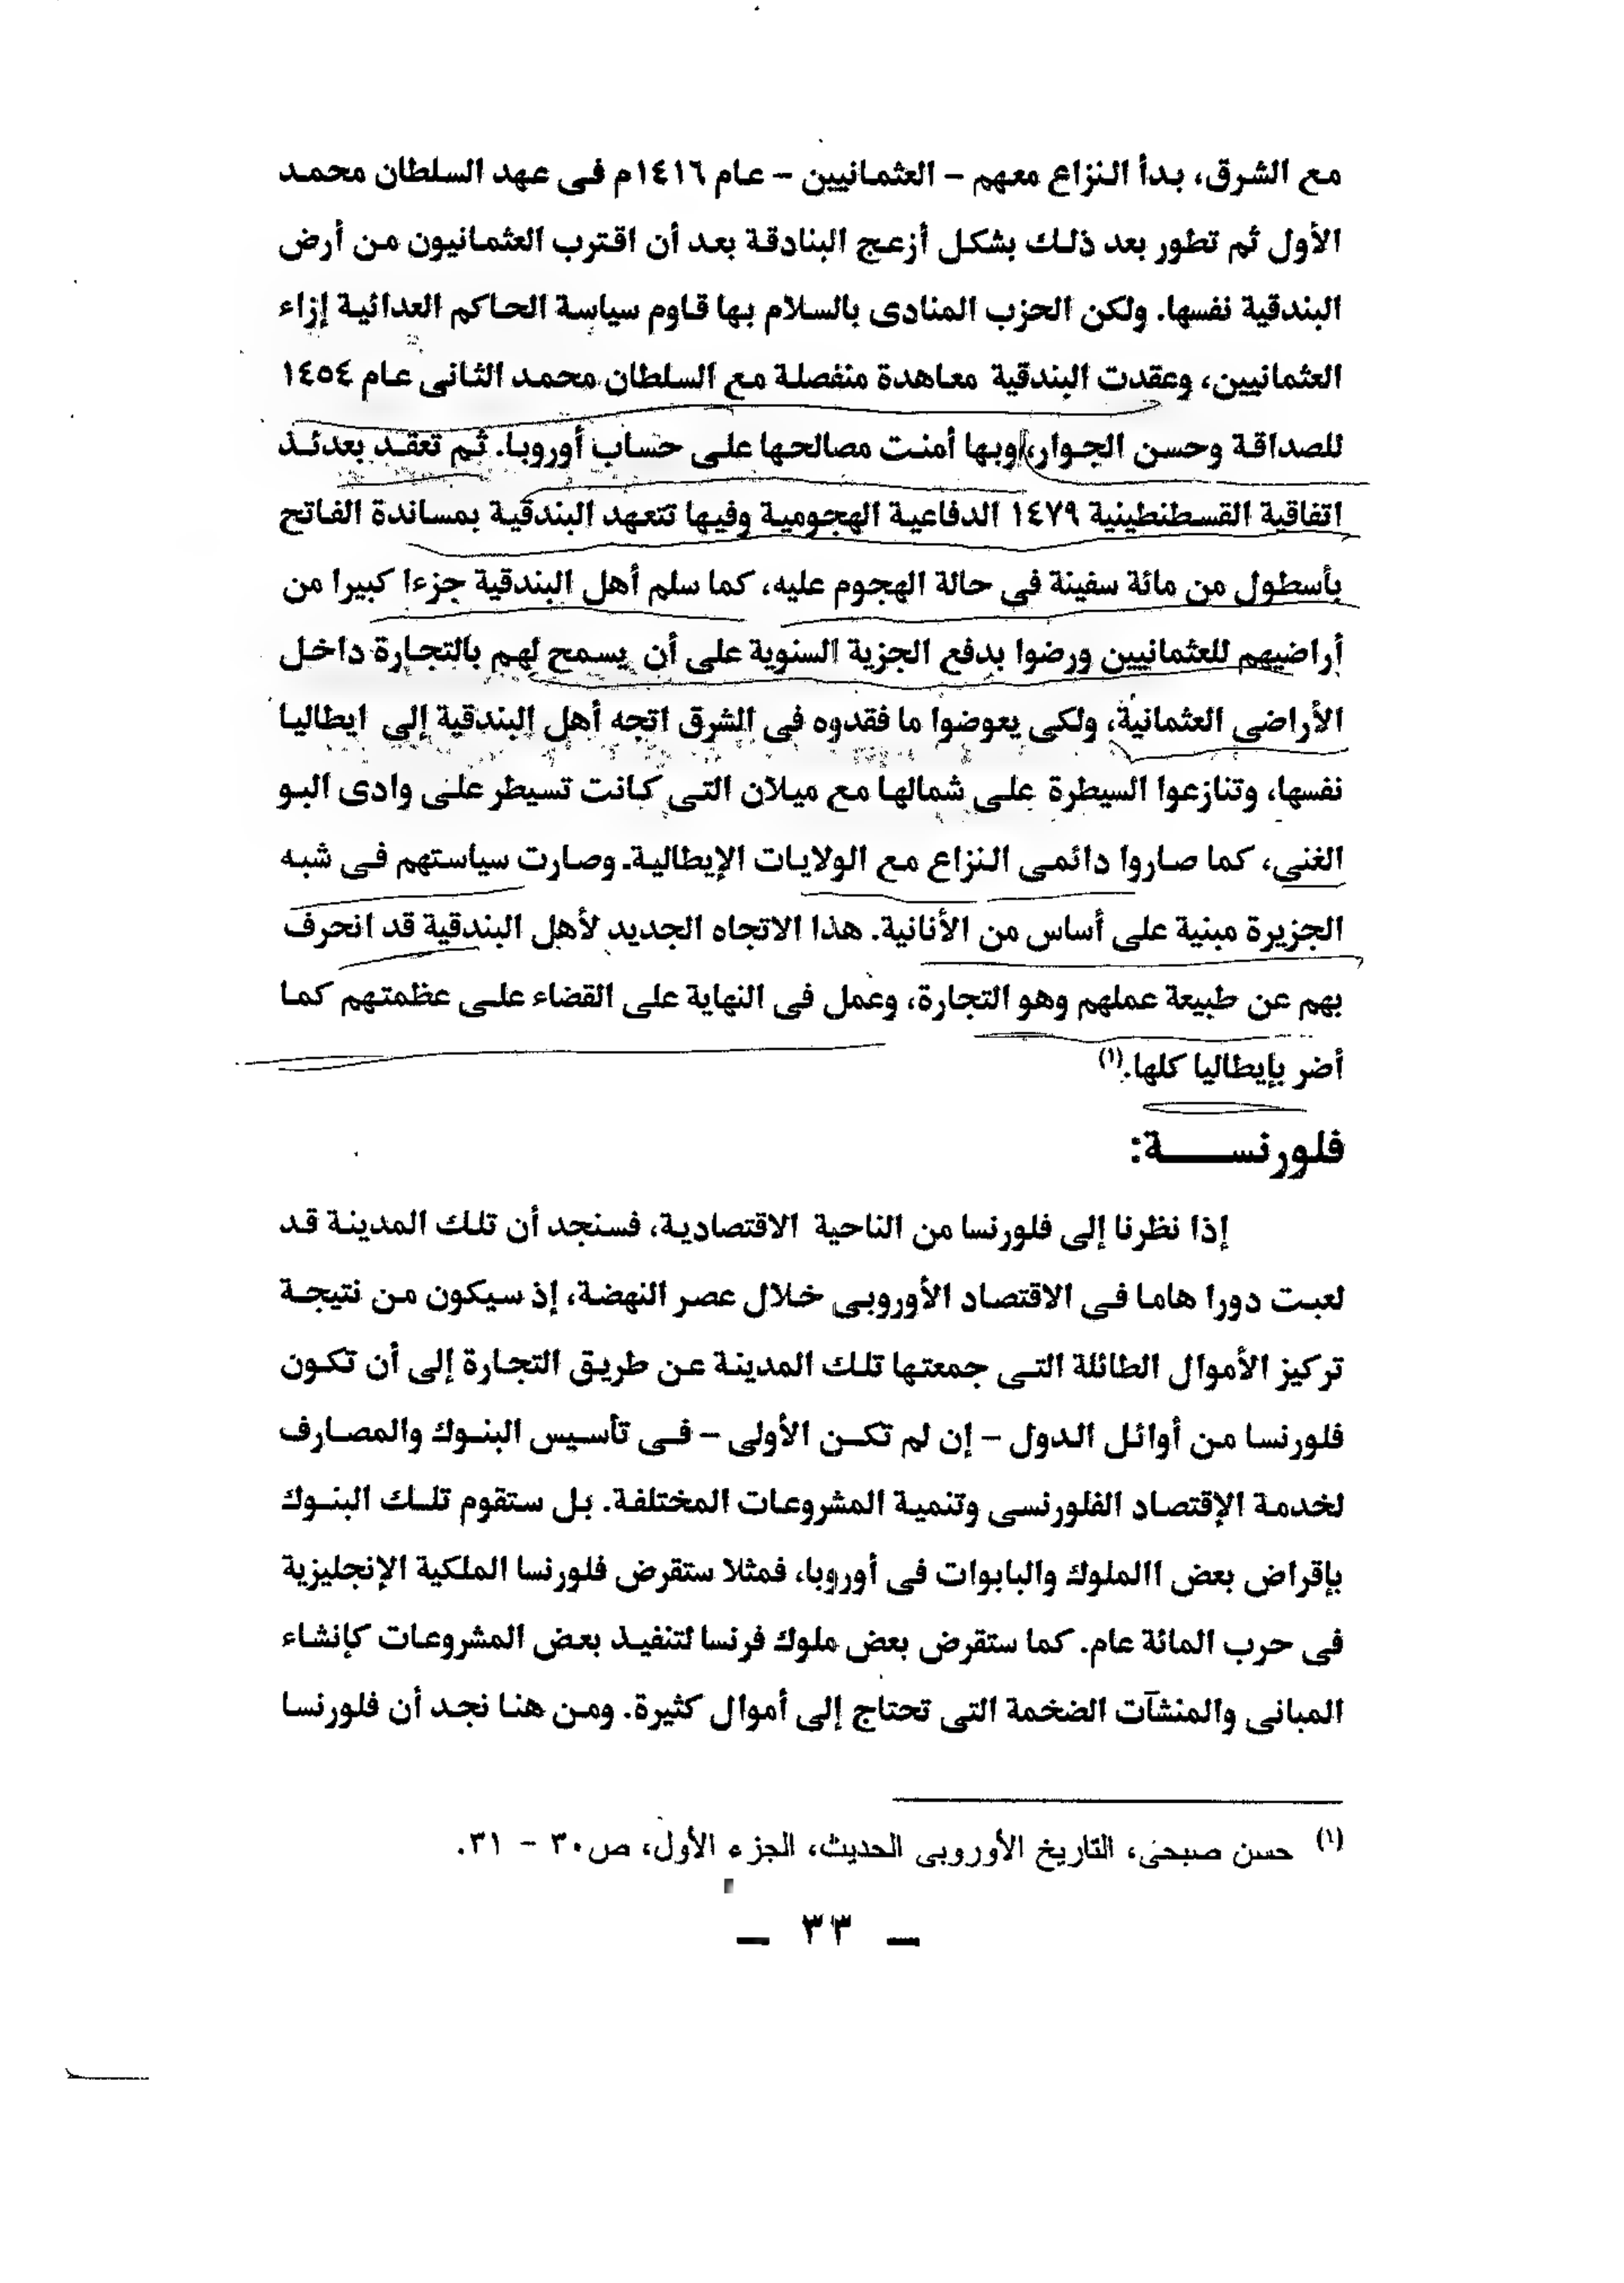 مع الشرق، بدأ النزاع معهم - العثمانيين - عام ١٤١٦م فى عهد السلطان محمد
الأول ثم تطور بعد ذلك بشكل أزعج البنادقة بعد أن اقترب العثمانيون من أرض
البندقية نفسها. ولكن الحزب المنادى بالسلام بها قاوم سياسة الحاكم العدائية إزاء
العثمانيين، وعقدت البندقية معاهدة منفصلة مع السلطان محمد الثانى عام ١٤٥٤
للصداقة وحسن الجوار، وبها أمنت مصالحها على حساب أوروبا. ثم تعقد بعدئذ
اتفاقية القسطنطينية ١٤٧٩ الدفاعية الهجومية وفيها تتعهد البندقية بمساندة الفاتح
بأسطول من مائة سفينة فى حالة الهجوم عليه، كما سلم أهل البندقية جزءا كبيرا من
أراضيهم للعثمانيين ورضوا بدفع الجزية السنوية على أن يسمح لهم بالتجارة داخل
الأراضى العثمانية، ولكى يعوضوا ما فقدوه فى الشرق اتجه أهل البندقية إلى ايطاليا
نفسها، وتنازعوا السيطرة على شمالها مع ميلان التى كانت تسيطر على وادى البو
الغنى، كما صاروا دائمى النزاع مع الولايات الإيطالية. وصارت سياستهم فى شبه
الجزيرة مبنية على أساس من الأنانية. هذا الاتجاه الجديد لأهل البندقية قد انحرف
بهم عن طبيعة عملهم وهو التجارة، وعمل فى النهاية على القضاء على عظمتهم كما
أضر بإيطاليا كلها.(١)
فلورنســـــة:
إذا نظرنا إلى فلورنسا من الناحية الاقتصادية، فسنجد أن تلك المدينة قد
لعبت دورا هاما فى الاقتصاد الأوروبى خلال عصر النهضة، إذ سيكون من نتيجة
تركيز الأموال الطائلة التى جمعتها تلك المدينة عن طريق التجارة إلى أن تكون
فلورنسا من أوائل الدول - إن لم تكن الأولى - فى تأسيس البنوك والمصارف
لخدمة الإقتصاد الفلورنسى وتنمية المشروعات المختلفة. بل ستقوم تلك البنوك
بإقراض بعض االملوك والبابوات فى أوروبا، فمثلا ستقرض فلورنسا الملكية الإنجليزية
فى حرب المائة عام. كما ستقرض بعض ملوك فرنسا لتنفيذ بعض المشروعات كإنشاء
المبانى والمنشآت الضخمة التى تحتاج إلى أموال كثيرة. ومن هنا نجد أن فلورنسا
(١) حسن صبحى، التاريخ الأوروبى الحديث، الجزء الأول، ص٣٠ - ٣١.
- ٣٣ -